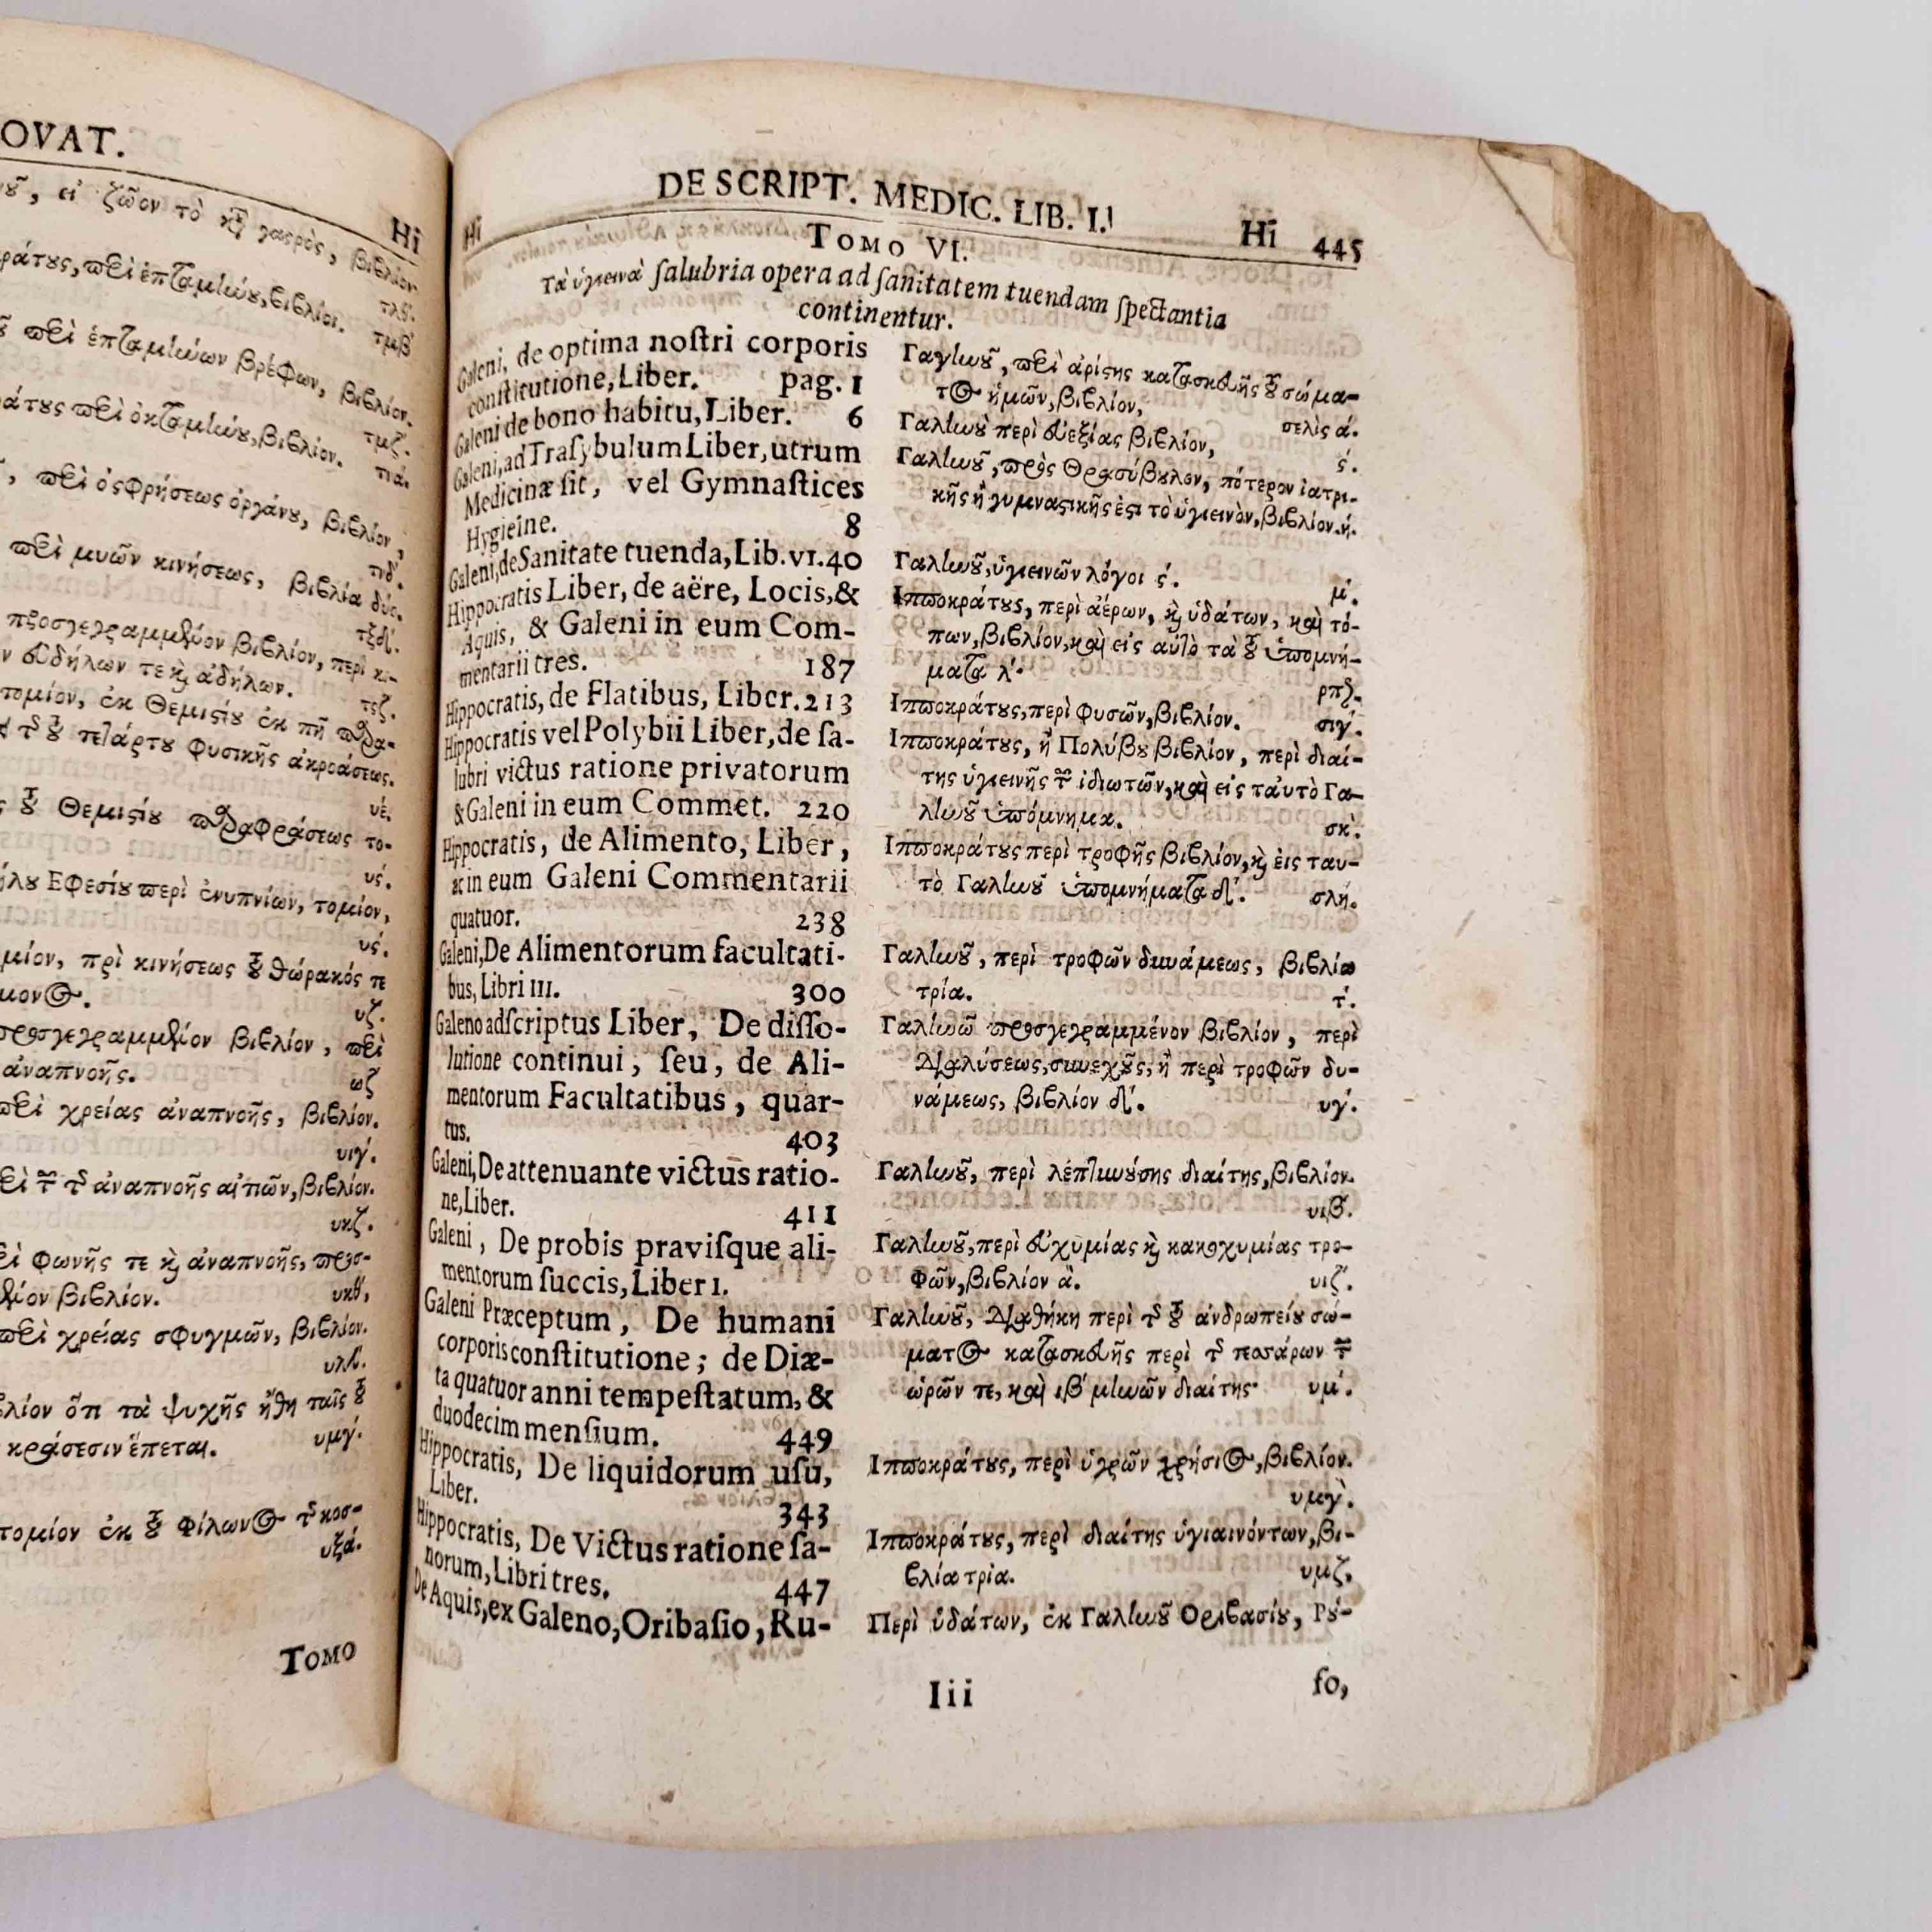 OVAT.
Hi
ȣ͂, εἰ ζῶον τὸ
τλς΄.
ράτȣς, περὶ ἑπταμήνȣ, βιβλίον.
τμβ΄
περὶ ἑπταμήνων βρέφων, βιβλίον.
τμζ΄.
άτȣς περὶ ὀκταμήνȣ, βιβλίον.
, περὶ ὀσφρήσεως ὀργάνȣ, βιβλίον,
τνδ΄.
περὶ μυῶν κινήσεως, βιβλία δύο.
τξδ΄.
προσγεγραμμένον βιβλίον, περὶ κι-
ν εὐδήλων τε κὶ ἀδήλων.
τομίον, ἐκ Θεμιστίȣ ἐκ
τετάρτȣ φυσικῆς ἀκροάσεως.
υέ.
Θεμιστίȣ παραφράσεως το-
υς΄.
ήλȣ Εφεσίȣ περὶ ἐνυπνίων, τομίον,
υς΄.
μίον, πρὶ κινήσεως τȣ͂ θώρακός τε
μονος.
υζ΄.
προσγεγραμμένον βιβλίον, περὶ
ἀναπνοῆς.
ωζ
περὶ χρείας ἀναπνοῆς, βιβλίον.
υιγ΄.
περὶ τῶν τῆς ἀναπνοῆς αἰτιῶν, βιβλίον.
υκζ΄.
φωνῆς τε κὶ ἀναπνοῆς, προσ-
βιβλίον.
περὶ χρείας σφυγμῶν, βιβλίον.
βλίον ὅτι τὰ ψυχῆς ἤθη ταῖς τȣ͂
κράσεσιν ἕπεται.
υμγ΄.
τομίον ἐκ τȣ͂ Φίλωνος τῆς κοσ-
υξά.
TOMO
Hi
DE SCRIPT. MEDIC. LIB. I.
Hi 445
TOMO VI.
Τὰ ὑγιεινὰ ſalubria opera ad ſanitatem tuendam ſpectantia
continentur.
Galeni, de optima noſtri corporis
conſtitutione, Liber. pag. 1
Galeni de bono habitu, Liber. 6
Galeni, ad Traſybulum Liber, utrum
Medicinæ ſit, vel Gymnaſtices
Hygieine. 8
Galeni, de Sanitate tuenda, Lib. VI. 40
Hippocratis Liber, de aëre, Locis, &
Aquis, & Galeni in eum Com-
mentarii tres. 187
Hippocratis, de Flatibus, Liber. 213
Hippocratis vel Polybii Liber, de ſa-
lubri victus ratione privatorum
& Galeni in eum Commet. 220
Hippocratis, de Alimento, Liber,
& in eum Galeni Commentarii
quatuor. 238
Galeni, De Alimentorum facultati-
bus, Libri III. 300
Galeno adſcriptus Liber, De diſſo-
lutione continui, ſeu, de Ali-
mentorum Facultatibus, quar-
tus. 403
Galeni, De attenuante victus ratio-
ne, Liber. 411
Galeni, De probis praviſque ali-
mentorum ſuccis, Liber I.
Galeni Præceptum, De humani
corporis conſtitutione; de Diæ-
ta quatuor anni tempeſtatum, &
duodecim menſium. 449
Hippocratis, De liquidorum uſu,
Liber. 343
Hippocratis, De Victus ratione ſa-
norum, Libri tres. 447
De Aquis, ex Galeno, Oribaſio, Ru-
Γαγίωȣ͂, περὶ ἀρίστης κατασκευῆς τȣ͂ σώμα-
τος ἡμῶν, βιβλίον, σελὶς ά.
Γαλίωȣ͂ περὶ εὐεξίας βιβλίον, ς΄.
Γαλίωȣ͂, πρὸς Θρασύβȣλον, πότερον ἰατρι-
κῆς ἢ γυμναστικῆς ἐστι τὸ ὑγιεινὸν, βιβλίον. ή.
Γαλίωȣ͂, ὑγιεινῶν λόγοι ς΄. μ΄.
Ιπποκράτȣς, περὶ ἀέρων, κὶ ὑδάτων, καὶ τό-
πων, βιβλίον, καὶ εἰς αὐτὸ τὰ τȣ͂ ὑπομνή-
ματα λ΄. ρπζ.
Ιπποκράτȣς, περὶ φυσῶν, βιβλίον. σιγ΄.
Ιπποκράτȣς, ἢ Πολύβȣ βιβλίον, περὶ διαί-
της ὑγιεινῆς τῶν ἰδιωτῶν, καὶ εἰς ταὐτὸ Γα-
λίωȣ͂ ὑπόμνημα. σκ΄.
Ιπποκράτȣς περὶ τροφῆς βιβλίον, κὶ ἐις ταυ-
τὸ Γαλίωȣ͂ ὑπομνήματα δ΄. σλή.
Γαλίωȣ͂, περὶ τροφῶν δυνάμεως, βιβλία
τρία. τ΄.
Γαλίωῶ προσγεγραμμένον βιβλίον, περὶ
Διαλύσεως συνεχȣ͂ς, ἢ περὶ τροφῶν δυ-
νάμεως, βιβλίον δ΄. υγ΄.
Γαλίωȣ͂, περὶ λεπτυνȣ́σης διαίτης, βιβλίον.
υιβ΄.
Γαλίωȣ͂, περὶ εὐχυμίας κὶ κακοχυμίας τρο-
φῶν, βιβλίον ἄ. υιζ΄.
Γαλίωȣ͂, Διαθήκη περὶ τῆς τȣ͂ ἀνδρωπείȣ σώ-
ματος κατασκευῆς περὶ τῆς τεσσάρων τῶν
ὡρῶν τε, καὶ ιβ΄ μηνῶν διαίτης. υμ΄.
Ιπποκράτȣς, περὶ ὑγρῶν χρήσιος, βιβλίον.
υμγ΄.
Ιπποκράτȣς, περὶ διαίτης ὑγιαινόντων, βι-
βλία τρία. υμζ,
Περὶ ὑδάτων, ἐκ Γαλίωȣ͂ Οριβασίȣ, Ρȣ́-
Iii
fo,